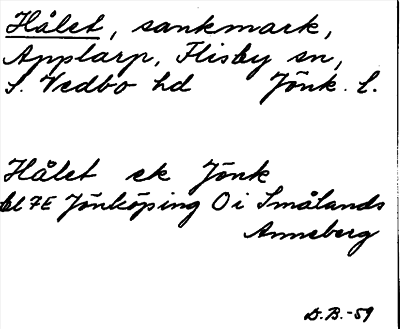 Hålet, sankmark,
Applarp, Flisby sn,
S. Vedbo hd Jönk. L.
Hålet ek Jönk
bl 7E Jönköping O i Smålands
Anneberg
D.B.-59